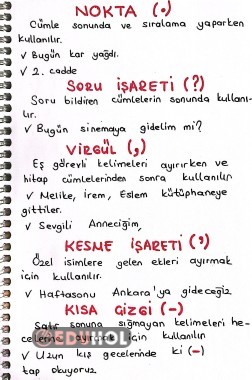 NOKTA (.)
Cümle sonunda ve sıralama yaparken
kullanılır.
✓ Bugün kar yağdı.
✓ 2. cadde
SORU İŞARETİ (?)
Soru bildiren cümlelerin sonunda kullanı-
lır.
✓ Bugün sinemaya gidelim mi?
VİRGÜL (,)
Eş görevli kelimeleri ayırırken ve
hitap cümlelerinden sonra kullanılır
✓ Melike, İrem, Eslem kütüphaneye
gittiler.
✓ Sevgili Anneciğim,
KESME İŞARETİ (')
Özel isimlere gelen ekleri ayırmak
için kullanılır.
✓ Haftasonu Ankara'ya gideceğiz
KISA ÇİZGİ (-)
Satır sonuna sığmayan kelimeleri he-
celerine ayırmak için kullanılır
✓ Uzun kış gecelerinde ki (-)
tap okuyoruz